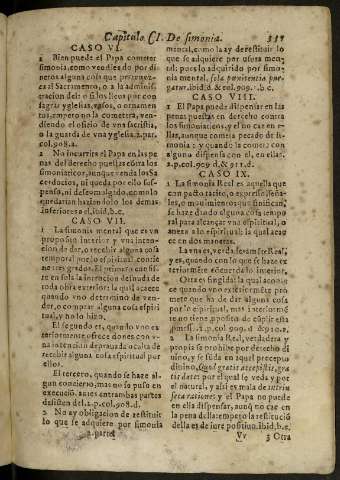 Capitulo CI. De simonia. 337
CASO VI.
1 Bien puede el Papa cometer
simonia, como vendiedo por di-
neros alguna cosa que pertenez-
ca al Sacramento, o a la adminis-
tracion del: o si los lleua por con-
sagrar yglesias, vasos, o ornamen-
tos. empero no la cometerà, ven-
diendo el oficio de vna sacristia,
o la guarda de vna yglesia. 2. par.
col. 908. a.
2 No incurrira el Papa en las pe-
nas del derecho puestas cõtra los
simoniaticos, aunque venda los Sa-
cerdocios, ni queda por ello sus-
penso, ni descomulgado, como lo
quedarian haziendolo los demas
inferiores a el. ibid. b. c.
CASO VII.
1 La simonia mental que es vn
proposito interior y vna inten-
cion de dar, o recebir alguna cosa
temporal por lo espiritual, contie-
ne tres grados. El primero consi-
ste en sola la intencion desnuda de
toda obra exterior: la qual acaece
quando vno determinò de ven-
der, o comprar alguna cosa espiri-
tual, y no lo hizo.
El segundo es, quando vno ex-
teriormente ofrece dones con v-
na intencion deprauada oculta de
recebir alguna cosa espiritual por
ellos.
El tercero, quando se haze al-
gun concierto, mas no se puso en
execuciõ. antes entrambas partes
desisten del. 2. p. col. 908. d.
2 No ay obligacion de restituir
lo que se adquiere por simonia
2. parte
mental, como la ay de restituir lo
que se adquiere por vsura men-
tal: pues lo adquirido por simo-
nia mental, sola pœnitentia pur-
gatur. ibid. d. & col. 909. b. c.
CASO VIII.
1 El Papa puede dispensar en las
penas puestas en derecho contra
los simoniaticos, y el no cae en e-
llas, aunque cometa pecado de si-
monia: y quando la comete con
alguno dispensa con el, en ellas.
2. p. col. 909. & 911. d.
CASO IX.
1 La simonia Real es aquella que
con pacto tacito, o expresso, seña-
les, o mouimientos que sinifican,
se haze dando alguna cosa tempo-
ral para alcançar vna espiritual, o
anexa a lo espiritual: la qual acae-
ce en dos maneras.
La vna es, verdadera mẽte Real,
y es, quando con lo que se haze ex-
teriormẽte cõcuerda lo interior.
Otra es fingida: la qual acaece
quando vno exteriormẽte pro-
mete que ha de dar alguna cosa
por lo espiritual, mas interiormẽ-
te no tiene proposito de cũplir esta
promesa. 2. p. col. 909. d. & 910. a.
2 La simonia Real, verdadera y
propia es prohibe por derecho di-
uino, y se funda en aquel precepto
diuino, Quod gratis accepistis, gra-
tis date: por el qual se veda y por
el natural, y assi es mala de intrin-
seca ratione: y el Papa no puede
en ella dispensar, aunq̃ no cae en
la pena della, empero la restituciõ
della es de iure positiuo. ibid. b. e.
Vv 3 Otra